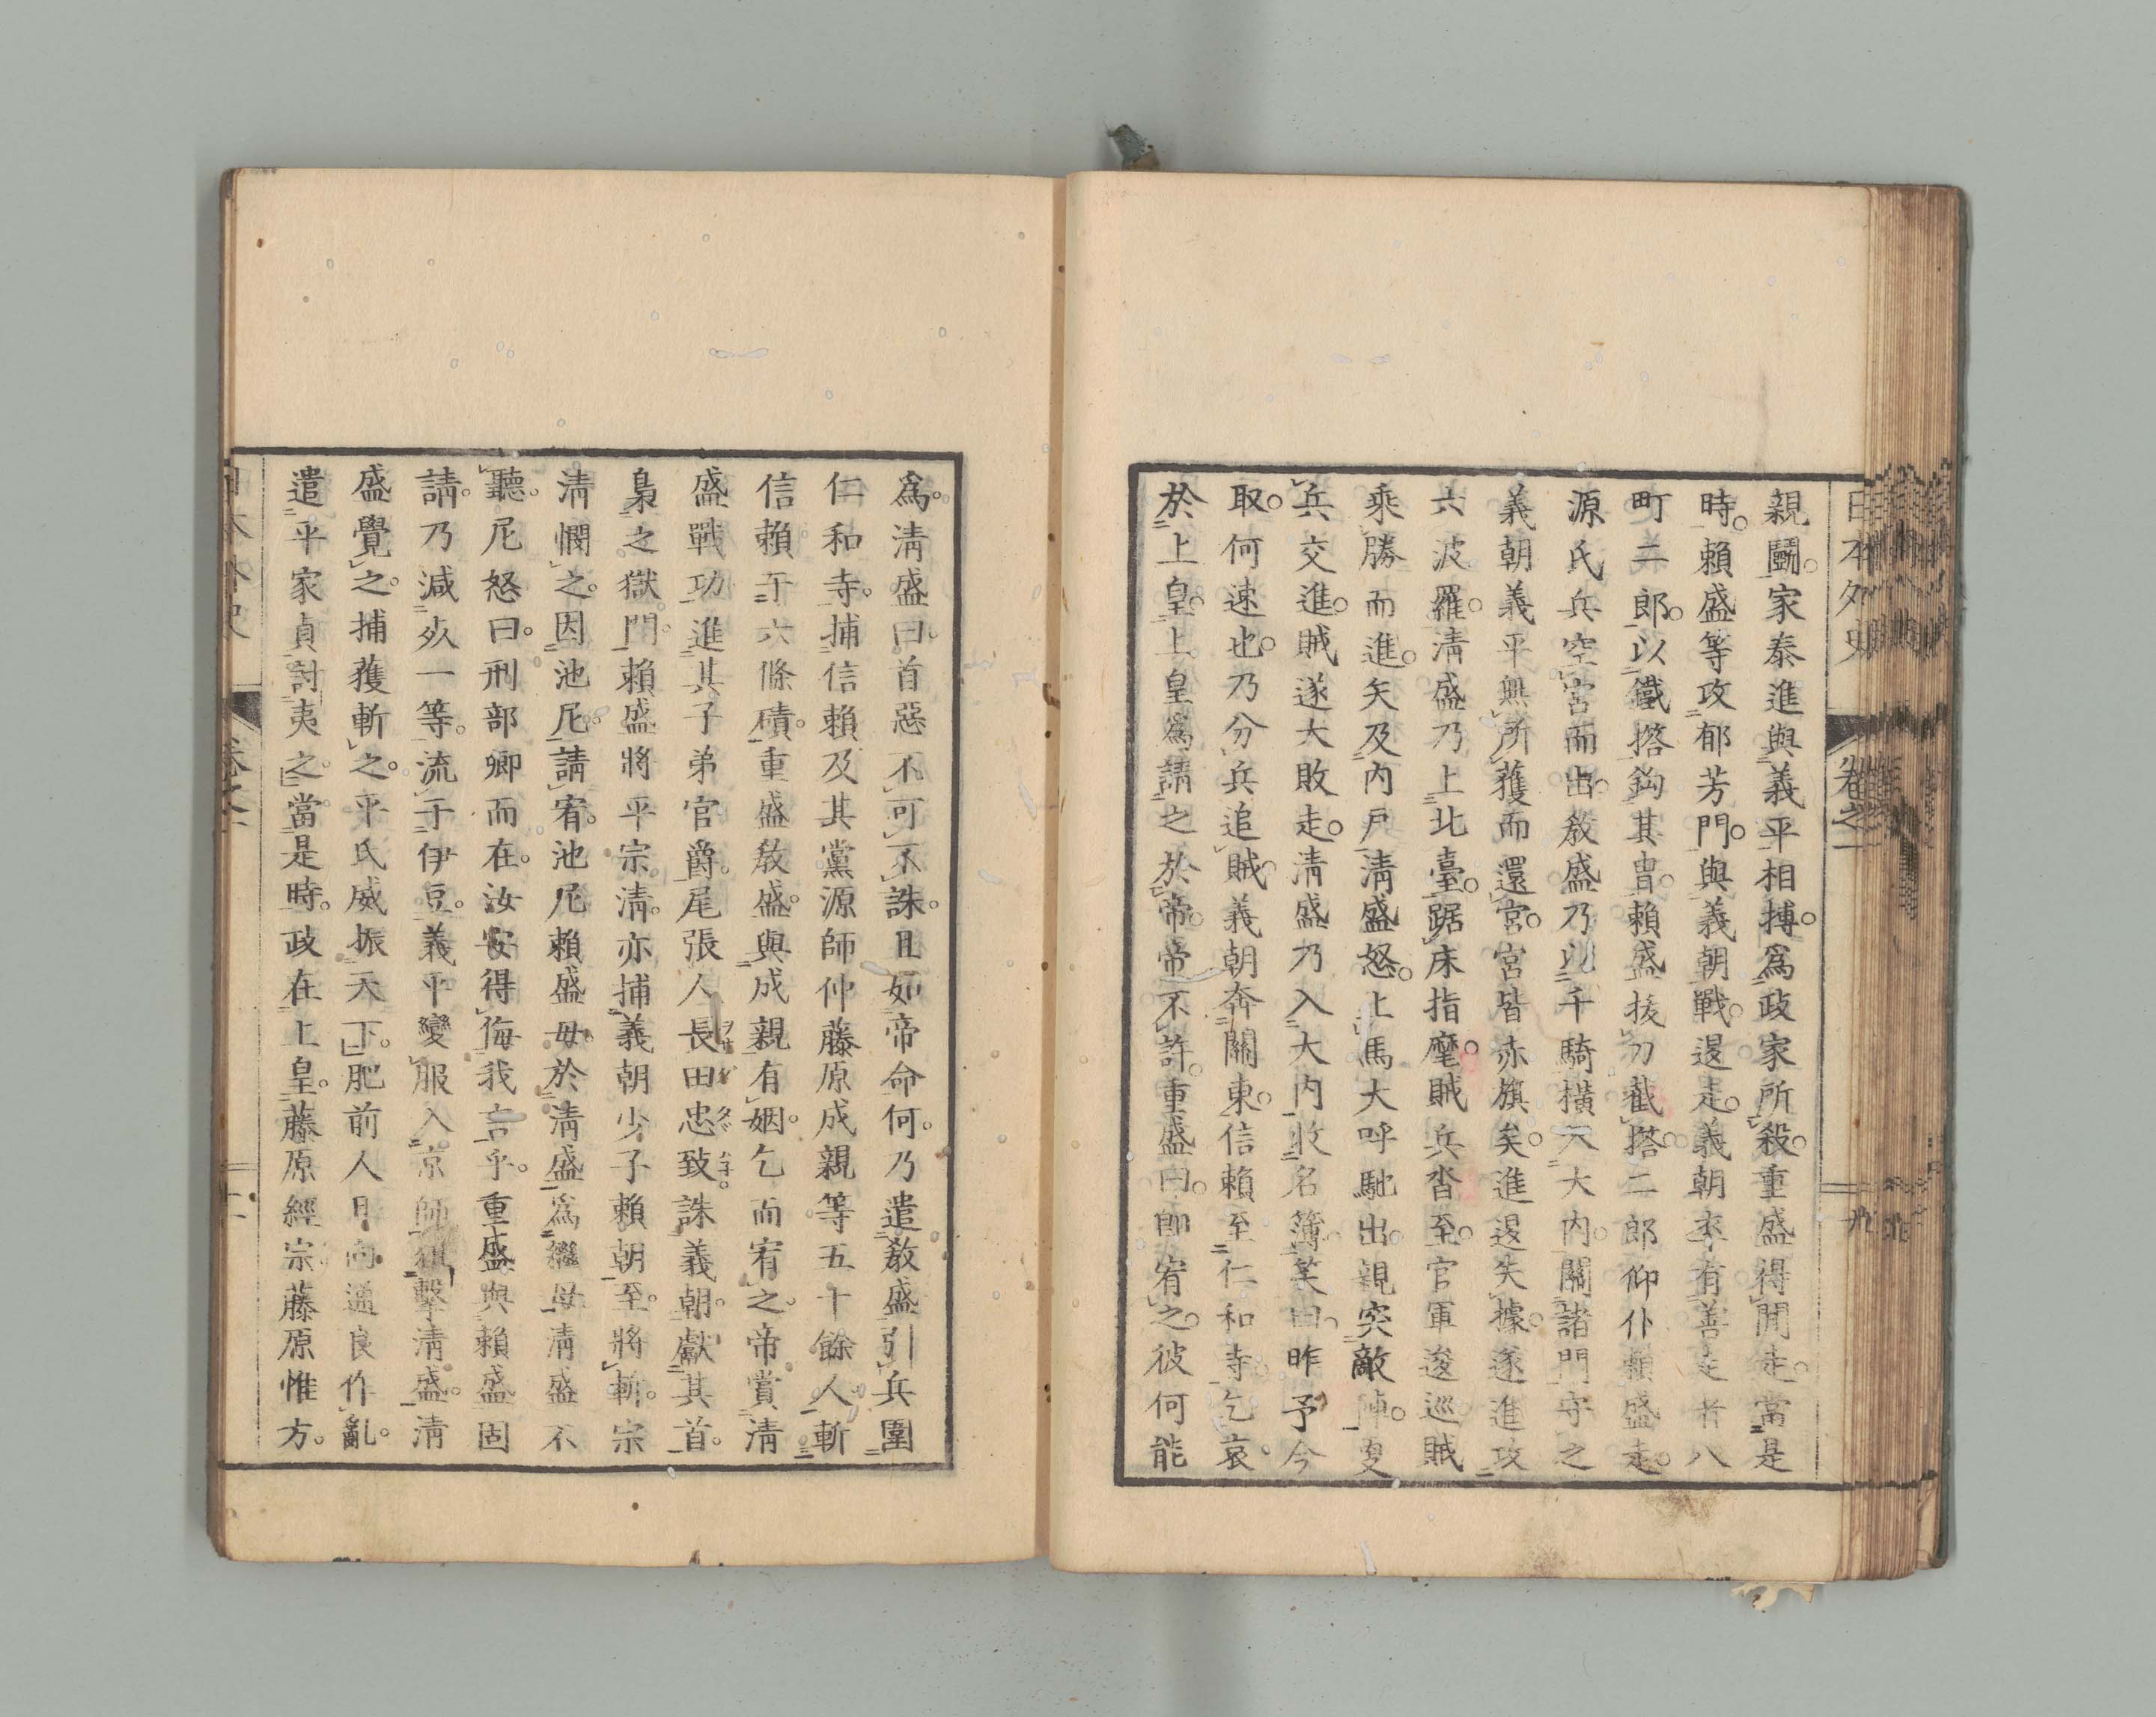 日本外史 卷之一 十九
親鬪。家泰進與義平相搏。爲政家所殺。重盛得閒走。當是
時。賴盛等攻郁芳門。與義朝戰。退走。義朝卒有善走者八
町二郎。以鐵搭鈎其冑。賴盛拔刀截搭。二郎仰仆。賴盛走。
源氏兵空宮而出。教盛乃以千騎橫入大內。關諸門守之
義朝義平無所獲而還。宮宮皆赤旗矣。進退失據。遂進攻
六波羅。淸盛乃上北臺。踞床指麾。賊兵沓至。官軍逡巡。賊
乘勝而進。矢及內戶。淸盛怒。上馬大呼馳出。親突敵陣。更
兵交進。賊遂大敗走。淸盛乃入大內。收名簿。笑曰。昨予今
取。何速也。乃分兵追賊。義朝奔關東。信賴至仁和寺。乞哀
於上皇。上皇爲請之於帝。帝不許。重盛曰。卽宥之。彼何能
爲。淸盛曰。首惡不可不誅。且如帝命何。乃遣教盛引兵圍
仁和寺。捕信賴及其黨源師仲藤原成親等五十餘人。斬
信賴于六條磧。重盛教盛。與成親有姻。乞而宥之。帝賞淸
盛戰功。進其子弟官爵。尾張人長田忠致誅義朝。獻其首。
梟之獄門。賴盛將平宗淸。亦捕義朝少子賴朝至。將斬。宗
淸憫之。因池尼。請宥。池尼賴盛母。於淸盛爲繼母。淸盛不
聽。尼怒曰。刑部卿而在。汝安得侮我言乎。重盛與賴盛固
請。乃減死一等。流于伊豆。義平變服入京師。狙擊淸盛。淸
盛覺之。捕獲斬之。平氏威振天下。肥前人日向通良作亂。
遣平家貞討夷之。當是時。政在上皇。藤原經宗藤原惟方。
日本外史 卷之一